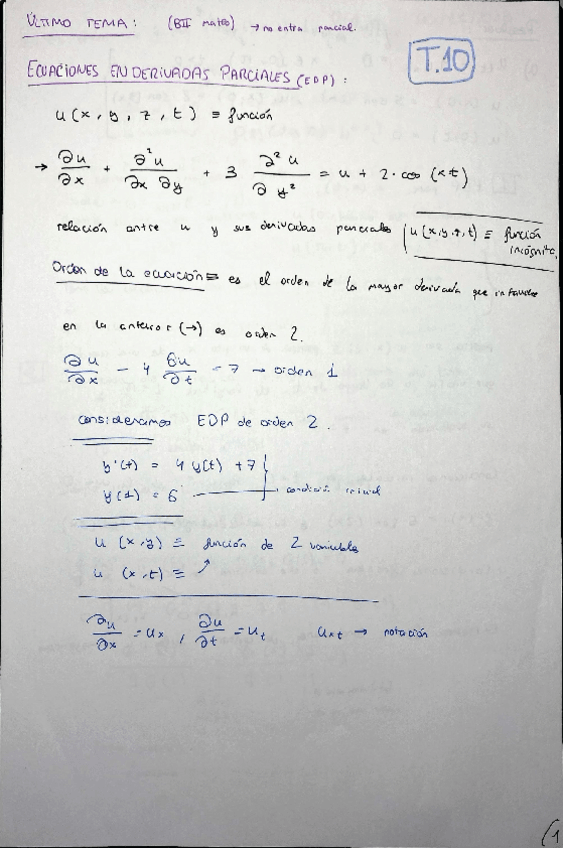 ÚLTIMO TEMA: (BII mates) → no entra parcial.
T.10
ECUACIONES EN DERIVADAS PARCIALES (EDP):
u(x, y, z, t) ≡ función
→ ∂u/∂x + ∂²u/∂x ∂y + 3 ∂²u/∂y² = u + 2·cos(xt)
relación entre u y sus derivadas parciales | u(x,y,z,t) ≡ función
incógnita
Orden de la ecuación ≡ es el orden de la mayor derivada que
en la anterior (→) es orden 2.
∂u/∂x − 4 ∂u/∂t = 7 → orden 1
consideramos EDP de orden 2.
y'(t) = 4y(t) + 7
y(1) = 6 condición inicial
u (x,y) ≡ función de 2 variables
u (x,t) ≡
∂u/∂x = ux , ∂u/∂t = ut uxt → notación
(1